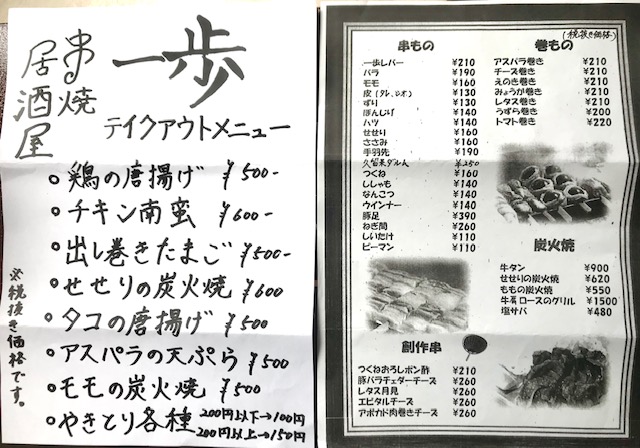 串焼
居酒屋
一歩
テイクアウトメニュー
鶏の唐揚げ ¥500-
チキン南蛮 ¥600-
出し巻きたまご ¥500-
せせりの炭火焼 ¥600
タコの唐揚げ ¥500
アスパラの天ぷら ¥500
モモの炭火焼 ¥500
やきとり各種 200円以下→100円
200円以上→150円
※税抜き価格です。
(税抜き価格)
串もの
一歩レバー ¥210
バラ ¥190
モモ ¥160
皮(タレ、シオ) ¥130
ずり ¥130
ぼんじり ¥140
ハツ ¥140
せせり ¥160
ささみ ¥160
手羽先 ¥190
久留米ダルム ¥250
つくね ¥160
ししゃも ¥140
なんこつ ¥140
ウインナー ¥140
豚足 ¥390
ねぎ間 ¥260
しいたけ ¥110
ピーマン ¥110
創作串
つくねおろしポン酢 ¥210
豚バラチェダーチーズ ¥260
レタス月見 ¥260
エビタルチーズ ¥260
アボカド肉巻きチーズ ¥260
巻もの
アスパラ巻き ¥210
チーズ巻き ¥210
えのき巻き ¥210
みょうが巻き ¥210
レタス巻き ¥210
うずら巻き ¥200
トマト巻き ¥220
炭火焼
牛タン ¥900
せせりの炭火焼 ¥620
ももの炭火焼 ¥550
牛肩ロースのグリル ¥1500
塩サバ ¥480